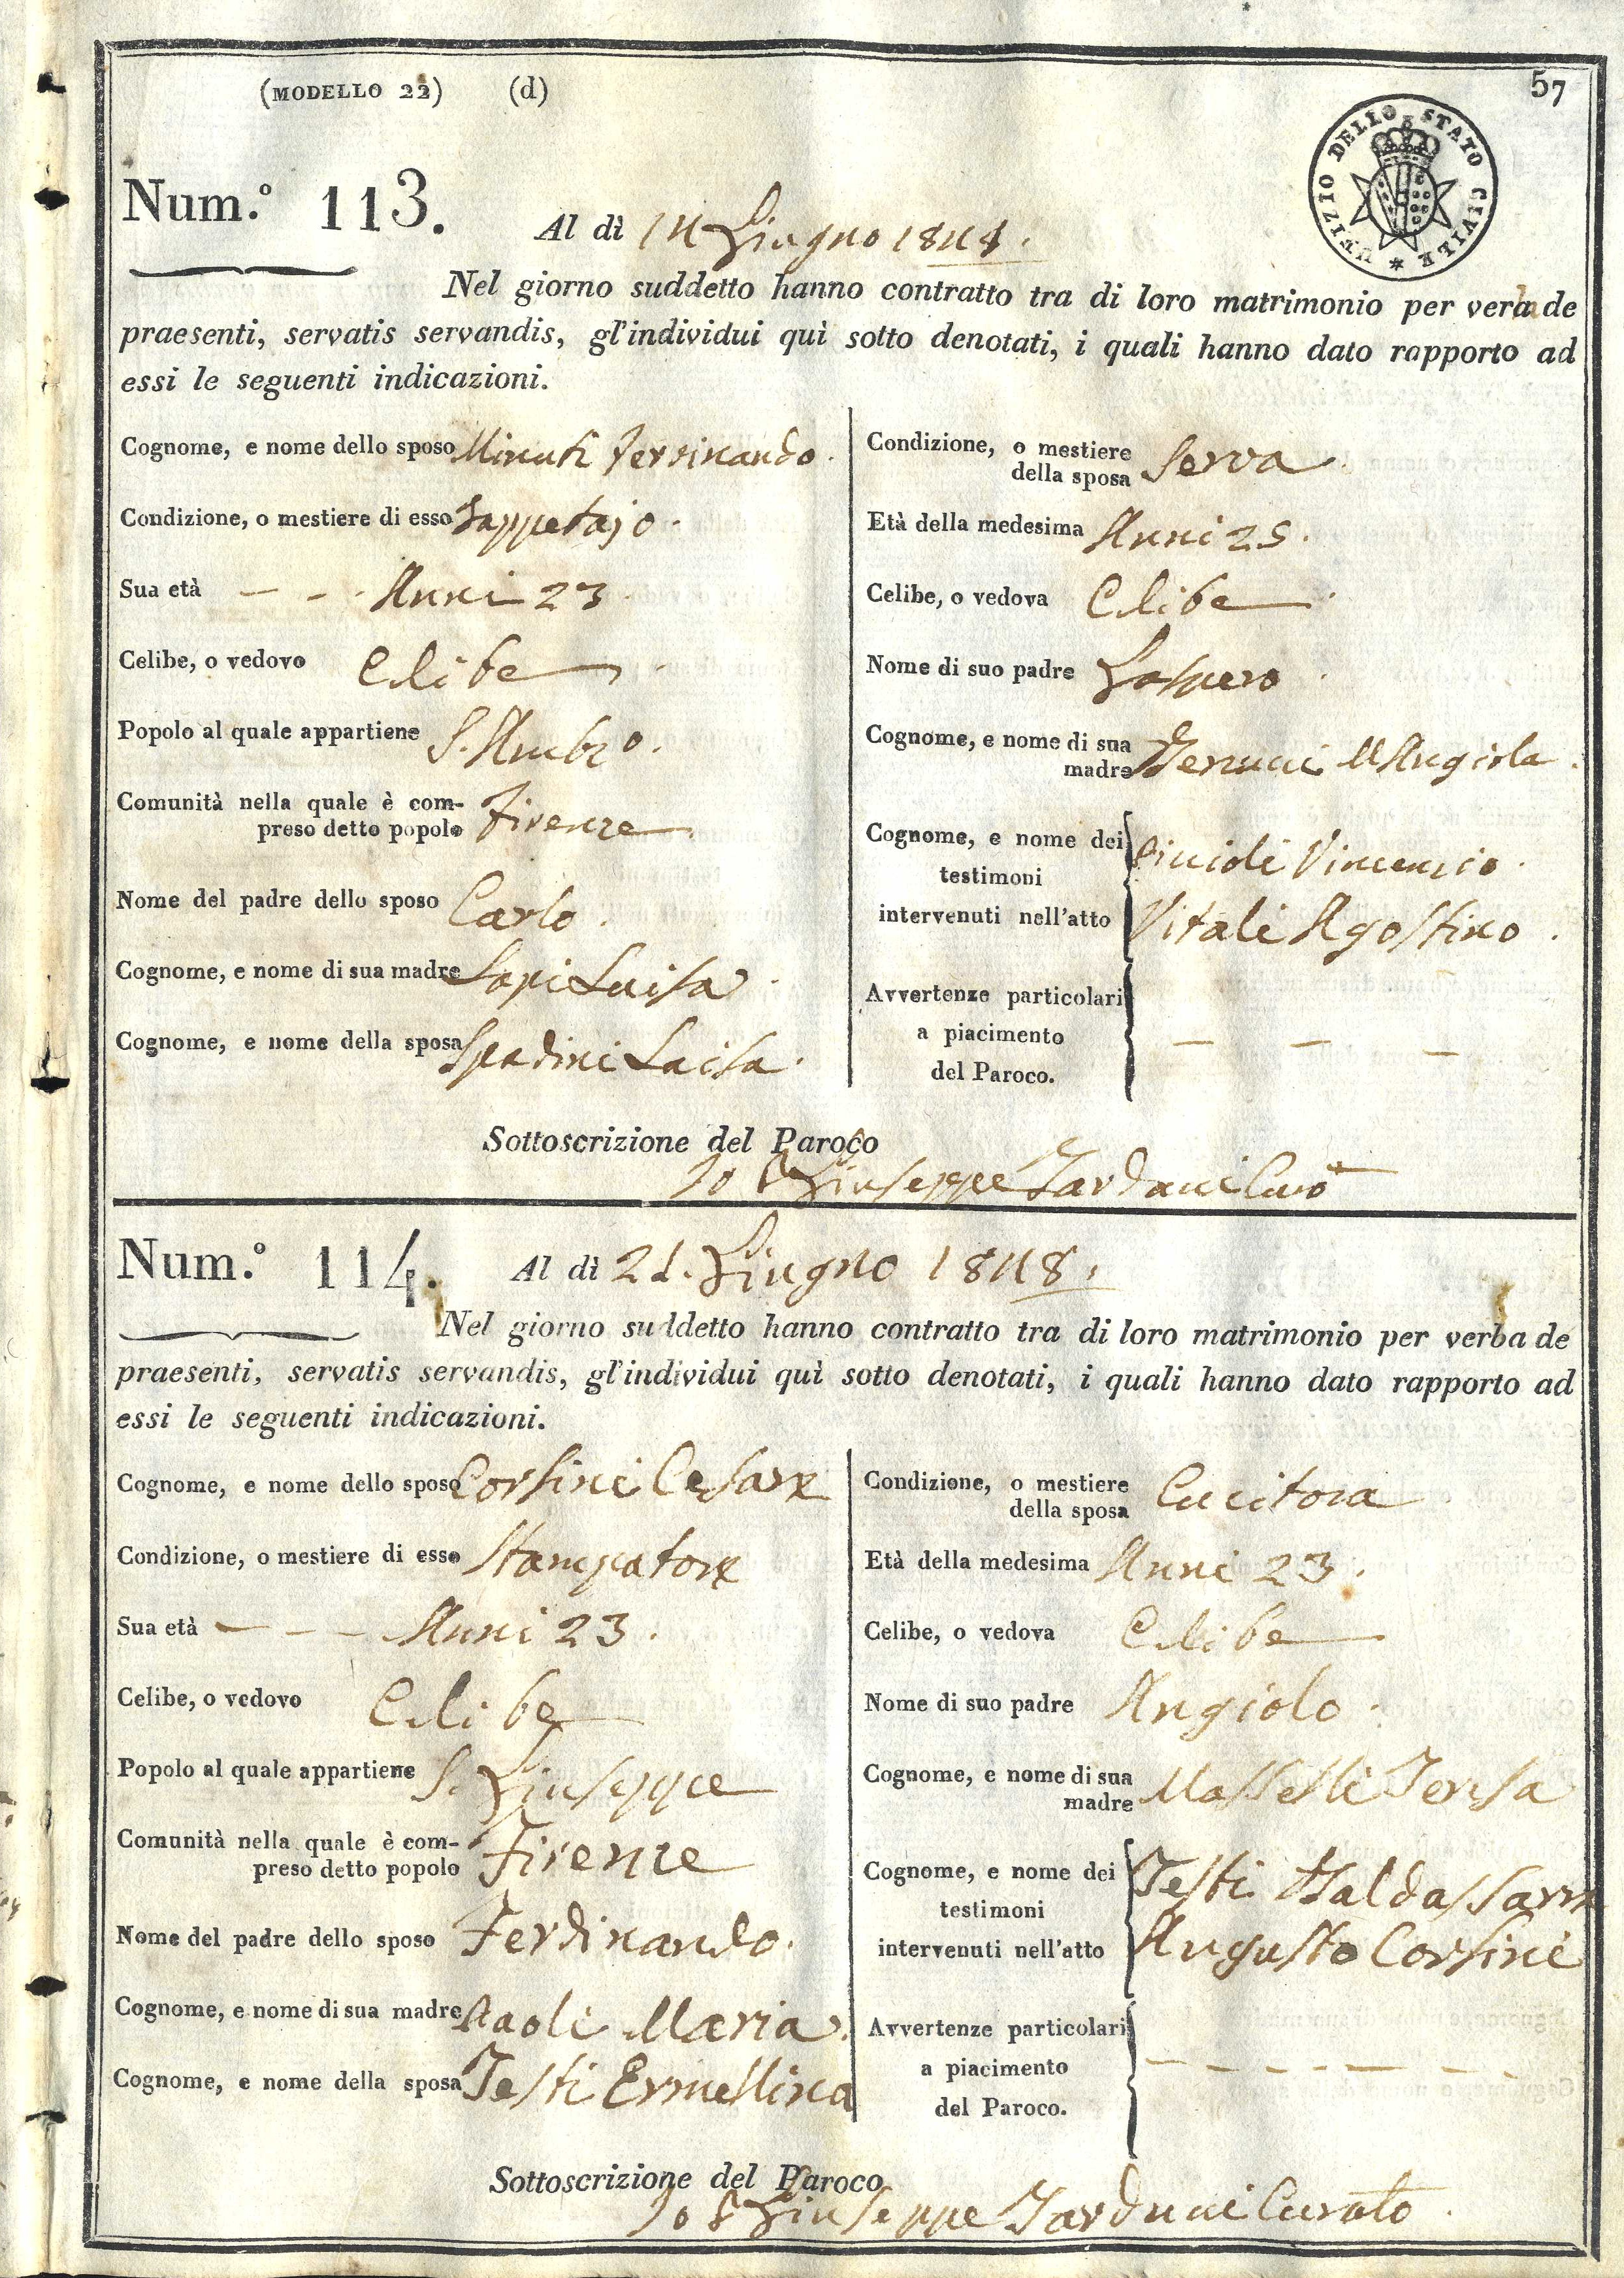 (MODELLO 22) (d)
57
UFIZIO DELLO STATO CIVILE
Num.° 113.
Al dì 14 Giugno 1848.
Nel giorno suddetto hanno contratto tra di loro matrimonio per verba de
praesenti, servatis servandis, gl'individui quì sotto denotati, i quali hanno dato rapporto ad
essi le seguenti indicazioni.
Cognome, e nome dello sposo Minuti Ferdinando.
Condizione, o mestiere di esso Tappetajo.
Sua età - - Anni 23.
Celibe, o vedovo Celibe.
Popolo al quale appartiene S. Ambr.o.
Comunità nella quale è com-
preso detto popolo Firenze
Nome del padre dello sposo Carlo.
Cognome, e nome di sua madre Lapi Luisa.
Cognome, e nome della sposa Spadini Luisa.
Condizione, o mestiere
della sposa Serva.
Età della medesima Anni 25.
Celibe, o vedova Celibe.
Nome di suo padre Gaspero.
Cognome, e nome di sua
madre M Angiola.
Cognome, e nome dei
testimoni
intervenuti nell'atto
Vincenzio.
Vitali Agostino.
Avvertenze particolari
a piacimento
del Paroco.
- - -
Sottoscrizione del Paroco
Io P Giuseppe Tarduci Cur.o
Num.° 114.
Al dì 21. Giugno 1848.
Nel giorno suddetto hanno contratto tra di loro matrimonio per verba de
praesenti, servatis servandis, gl'individui quì sotto denotati, i quali hanno dato rapporto ad
essi le seguenti indicazioni.
Cognome, e nome dello sposo Corsini Cesare
Condizione, o mestiere di esso Stampatore
Sua età - - - Anni 23.
Celibe, o vedovo Celibe
Popolo al quale appartiene S. Giuseppe
Comunità nella quale è com-
preso detto popolo Firenze
Nome del padre dello sposo Ferdinando.
Cognome, e nome di sua madre Paoli Maria.
Cognome, e nome della sposa Testi Ermellina
Condizione, o mestiere
della sposa Cucitora
Età della medesima Anni 23.
Celibe, o vedova Celibe
Nome di suo padre Angiolo.
Cognome, e nome di sua
madre Masselli Teresa
Cognome, e nome dei
testimoni
intervenuti nell'atto
Testi Baldassarre
Augusto Corsini
Avvertenze particolari
a piacimento
del Paroco.
- - - - - -
Sottoscrizione del Paroco
Io P Giuseppe Tarduci Curato.